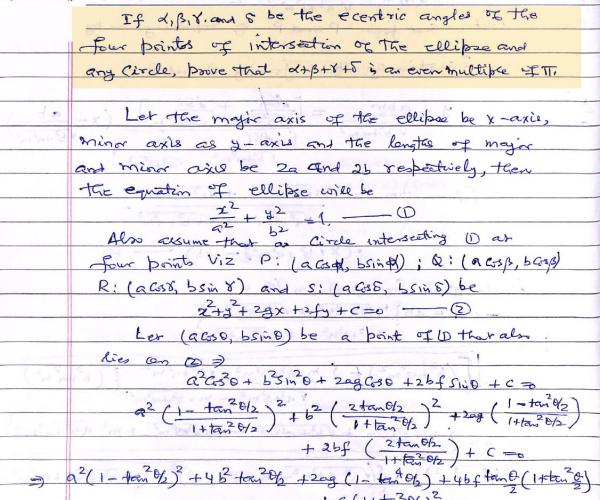 If α, β, γ and δ be the ecentric angles of the
four points of intersection of the ellipse and
any Circle, prove that α+β+γ+δ is an even multiple of π.
Let the major axis of the ellipse be x-axis,
minor axis as y-axis and the lengths of major
and minor axis be 2a and 2b respectively, then
the equation of ellipse will be
x²/a² + y²/b² = 1. —— ①
Also assume that a Circle intersecting ① at
four points Viz P: (a cosα, b sinα) ; Q: (a cosβ, b cosβ)
R: (a cosγ, b sinγ) and S: (a cosδ, b sinδ) be
x²+y²+2gx+2fy+c=0 —— ②
Let (a cosθ, b sinθ) be a point of ① that also
lies on ② ⇒
a²cos²θ + b²sin²θ + 2ag cosθ + 2bf sinθ + c = 0
a² ( (1 - tan²θ/2) / (1 + tan²θ/2) )² + b² ( 2tanθ/2 / (1 + tan²θ/2) )² + 2ag ( (1 - tan²θ/2) / (1 + tan²θ/2) )
+ 2bf ( 2tanθ/2 / (1 + tan²θ/2) ) + c = 0
⇒ a²(1 - tan²θ/2)² + 4b² tan²θ/2 + 2ag (1 - tan⁴θ/2) + 4bf tan θ/2 (1 + tan²θ/2)